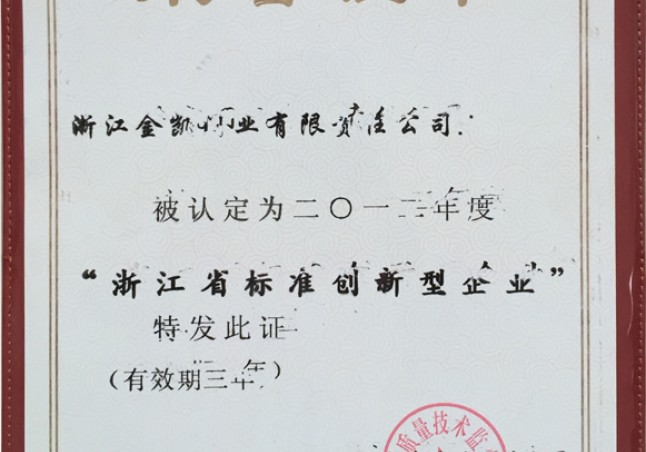 浙江金凯门业有限责任公司:
被认定为二〇一二年度
“浙江省标准创新型企业”
特发此证
(有效期三年)
质量技术监